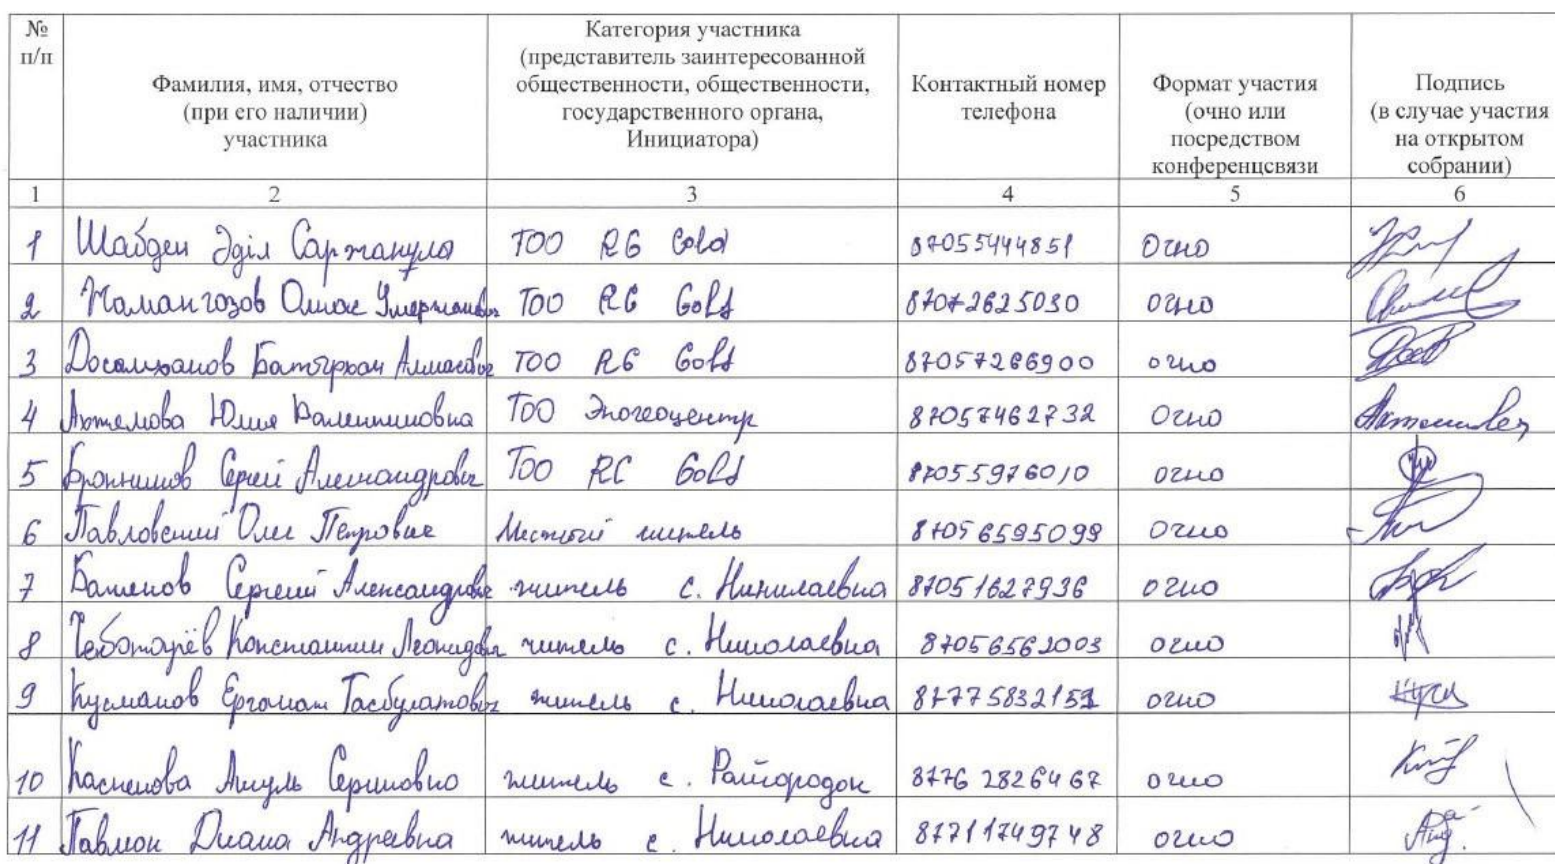 № п/п | Фамилия, имя, отчество (при его наличии) участника | Категория участника (представитель заинтересованной общественности, общественности, государственного органа, Инициатора) | Контактный номер телефона | Формат участия (очно или посредством конференцсвязи | Подпись (в случае участия на открытом собрании)
1 | 2 | 3 | 4 | 5 | 6
1 Шабден Әділ Саржанұлы ТОО RG Gold 87055444851 Очно
2 Жамангозов Олжас ТОО RG Gold 87072625030 очно
3 Досалханов Батырхан Алмасович ТОО RG Gold 87057266900 очно
4 Юлия Валентиновна ТОО Экогеоцентр 87057462732 Очно
5 Сергей Александрович ТОО RG Gold 87055976010 очно
6 Павловский Олег Петрович Местный житель 87056595099 Очно
7 Баженов Сергей Александрович житель с. Николаевка 87051627936 очно
8 Чеботарёв Константин Леонидович житель с. Николаевка 87056562003 очно
9 Кусманов Тасбулатович житель с. Николаевка очно
10 Каскенова Акуль Сериковна житель с. Райгородок 8776 2826467 очно
11 Диана Андреевна житель с. Николаевка 87711749748 очно